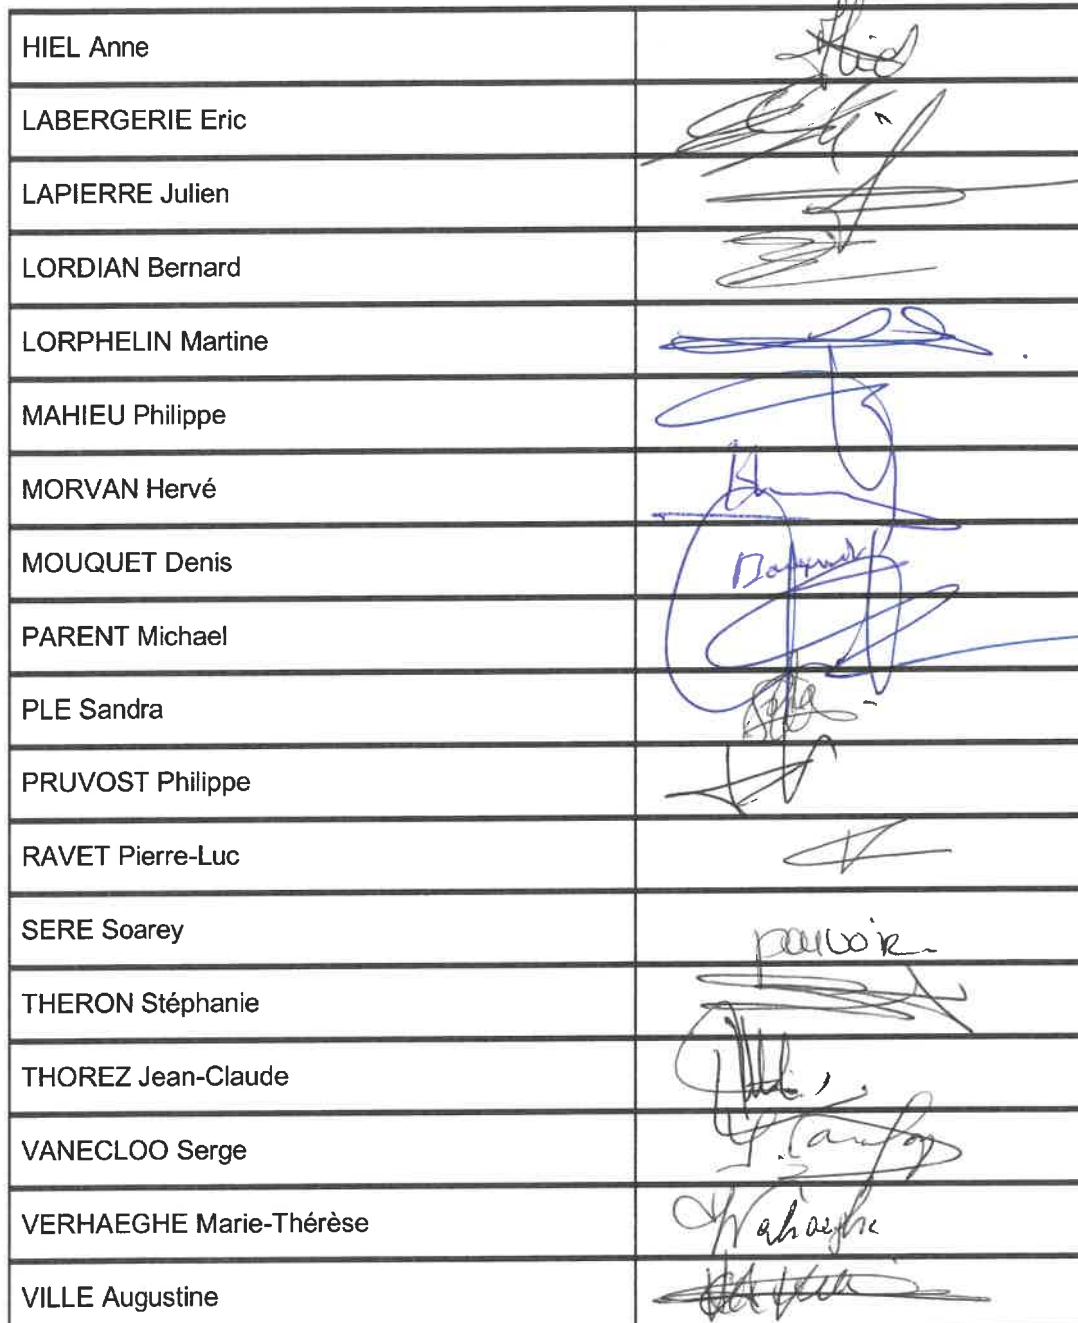 HIEL Anne
LABERGERIE Eric
LAPIERRE Julien
LORDIAN Bernard
LORPHELIN Martine
MAHIEU Philippe
MORVAN Hervé
MOUQUET Denis
PARENT Michael
PLE Sandra
PRUVOST Philippe
RAVET Pierre-Luc
SERE Soarey pouvoir
THERON Stéphanie
THOREZ Jean-Claude
VANECLOO Serge
VERHAEGHE Marie-Thérèse
VILLE Augustine